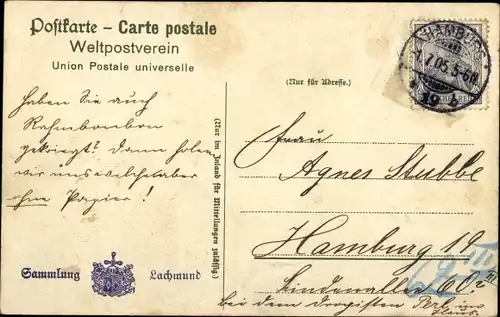 Postkarte – Carte postale
Weltpostverein
Union Postale universelle
(Nur für Adresse.)
HAMBURG
1.7.05. 5-6N
haben Sie auch
Rahmbonbon
gekriegt? Dann holen
wir uns welche aber
ohne Papier!
(Nur im Inland für Mitteilungen zulässig.)
Frau
Agnes Stubbe
Hamburg 19
Lindenallee 60 III
bei dem Drogisten
Sammlung Lachmund